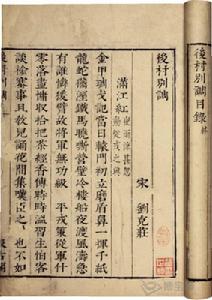 後村別調目錄
後村別調
宋 劉克莊
滿江紅 夜雨涼甚忽動從戎之興
金甲琱戈記當日轅門初立磨盾鼻一揮千紙
龍蛇猶濕鐵馬曉嘶營壁冷樓船夜渡風濤急
有誰憐猿臂故將軍無功級 平戎策從軍什
零落盡慵收拾把茶經香傳時時温習生怕客
談榆塞事且教兒誦花間集嘆臣之 也不如
後村別調